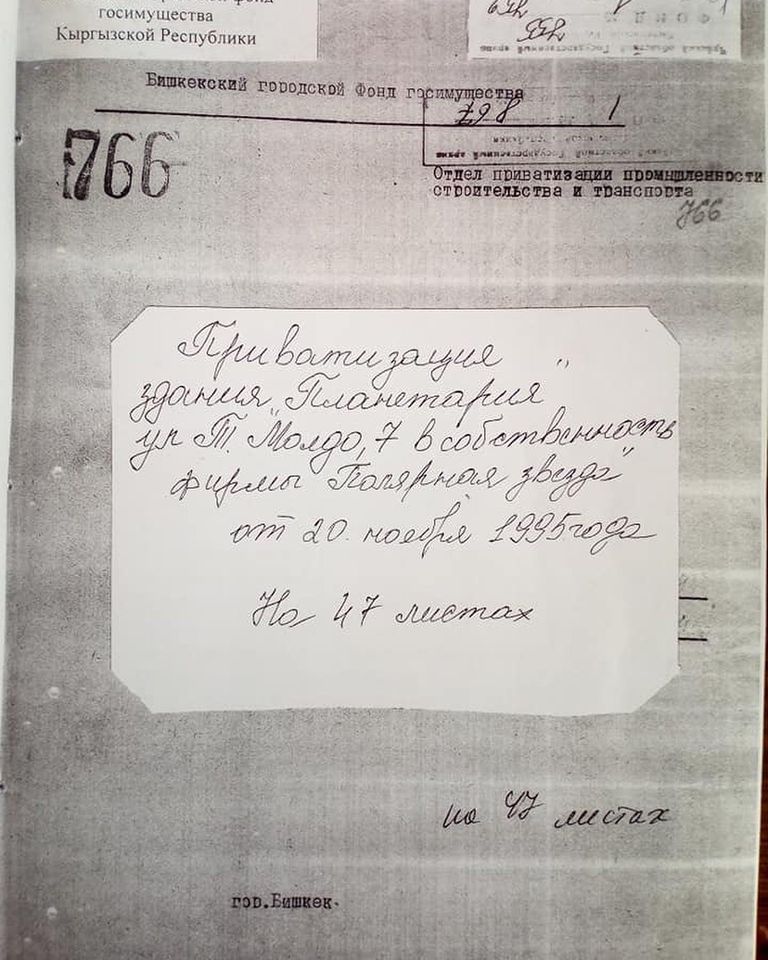 фонд
госимущества
Кыргызской Республики
Бишкекский городской Фонд госимущества
798 1
766
Отдел приватизации промышленности
строительства и транспорта
766
Приватизация
здания "Планетария"
ул Т. Молдо, 7 в собственность
фирмы "Полярная звезда"
от 20 ноября 1995 года
На 47 листах
на 47 листах
гор.Бишкек.